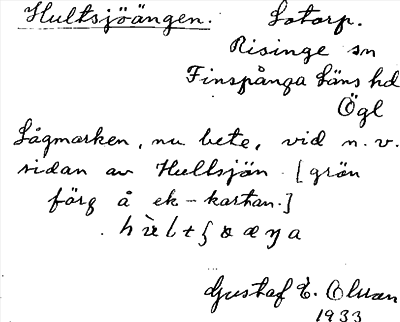 Hultsjöängen. Lotorp.
Risinge sn
Finspånga läns hd
Ögl
Lågmarken, nu bete, vid n. v.
sidan av Hultsjön. [grön
färg å ek-kartan.]
Gustaf E. Olsson
1933